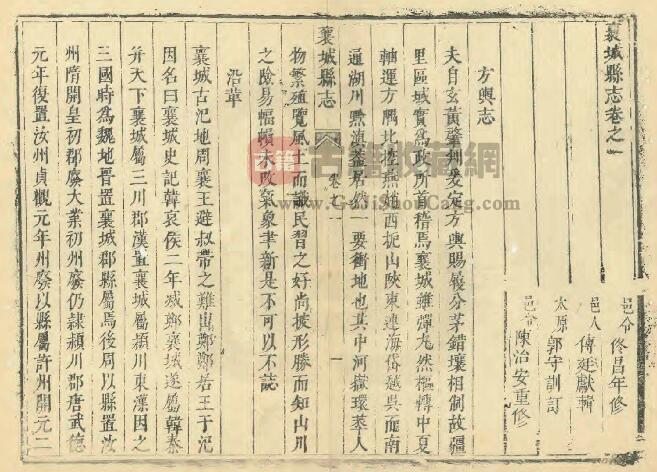 襄城縣志卷之一
邑令佟昌年修
邑人傅廷獻輯
太原郭守訓訂
邑令陳治安重修
方輿志
夫自玄黃肇州爰定方輿賜履分茅錯壤相制故疆
里區域實爲政所首稽焉襄城雖彈丸然樞轉中夏
轄運方隅北控燕趙西扼山陝東連海岱越吳而南
逼湖川黔滇蓋居然一要衝地也其中河獄環萃人
襄城縣志
卷之一
一
物繁殖覽風土而識民習之好尚披形勝而知山川
之險易幅𢄙大政氣象聿新是不可以不誌
沿革
襄城古氾地周襄王避叔帶之難出鄭鄭若王于氾
因名曰襄城史記韓哀侯二年滅鄭襄城遂屬韓秦
并天下襄城屬三川郡漢置襄城屬潁川東漢因之
三國時爲魏地晉置襄城郡縣屬焉後周以縣置汝
州隋開皇初郡廢大業初州廢仍隸潁川郡唐武德
元年復置汝州貞觀元年州廢以縣屬許州開元二
古籍
古籍收藏網
www.GuJiShouCang.com